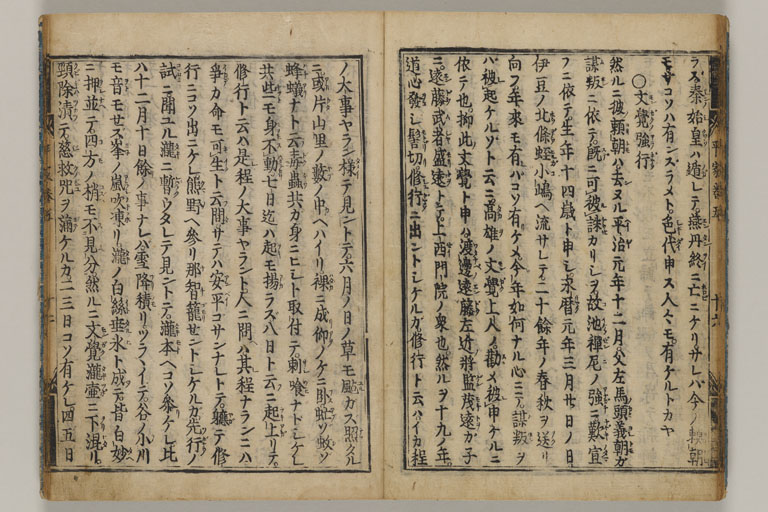 ラス秦始皇ハ遁レテ燕丹終ニ亡ニケリサレハ今ノ頼朝
モサコソハ有ンスラメト色代申ス人々モ有ケルトカヤ
○文覺強行
然ルニ彼頼朝ハ去ヌル平治元年十二月父左馬頭義朝ガ
謀叛ニ依テ既ニ可被誅カリシヲ故池禪尼ノ強ニ歎宜
フニ依テ生年十四歳ト申シ永暦元年三月廿日ノ日
伊豆ノ北條蛭小嶋ヘ流サレテ二十餘年ノ春秋ヲ送リ
向フ年來モ有ハコソ有ケメ今年如何ナル心ニテ謀叛ヲ
ハ被起ケルソト云ニ高雄ノ文覺上人ノ勸メ被申ケルニ
依テ也抑此文覺ト申ハ渡邊遠藤左近將監茂遠カ子
ニ遠藤武者盛遠トテ上西門院ノ衆也然ルヲ十九ノ年
道心發シ髻切修行ニ出ントシケルカ修行ト云ハイカ程
ノ大事ヤラン様テ見ントテ六月ノ日ノ草モ颭カス照タル
ニ或片山里ノ藪ノ中ヘハイリ裸ニ成仰ノケニ卧虻ソ蚊ソ
蜂蟻ナト云毒蟲共カ身ニヒシト取付テ刺喰ナトシケレ
共些モ身不動七日迄ハ起モ揚ラス八日ト云ニ起上リテ
修行ト云ハ是程ノ大事ヤラント人ニ問ハ其程ナランニハ
爭カ命モ可生ト云間サテハ安平コサンナレトテ軈テ修
行ニコソ出ニケレ熊野ヘ參リ那智籠セントシケルカ先行ノ
試ニ聞ユル瀧ニ暫ウタレテ見ントテ瀧本ヘコソ參ケレ比
ハ十二月十日餘ノ事ナレハ雪降積リツラヽイテ谷ノ小川
モ音モセス峯ノ嵐吹凍リ瀧ノ白絲垂氷ト成テ皆白妙
ニ押並テ四方ノ梢モ不見分然ルニ文覺瀧壷ニ下混リ
頸際漬テ慈救咒ヲ滿ケルカ二三日コソ有ケレ四五日